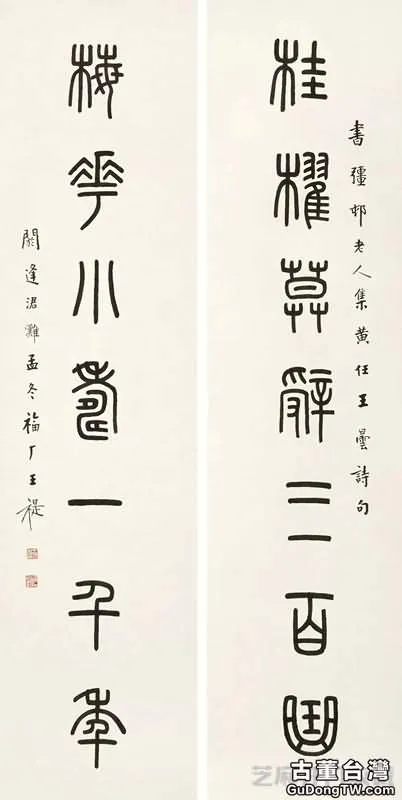 桂櫂莫辭三百
書彊邨老人集黃任王曇詩句
梅花小壽一千年
閼逢涒灘孟冬福厂王禔
古董台灣
GuDongTW.com